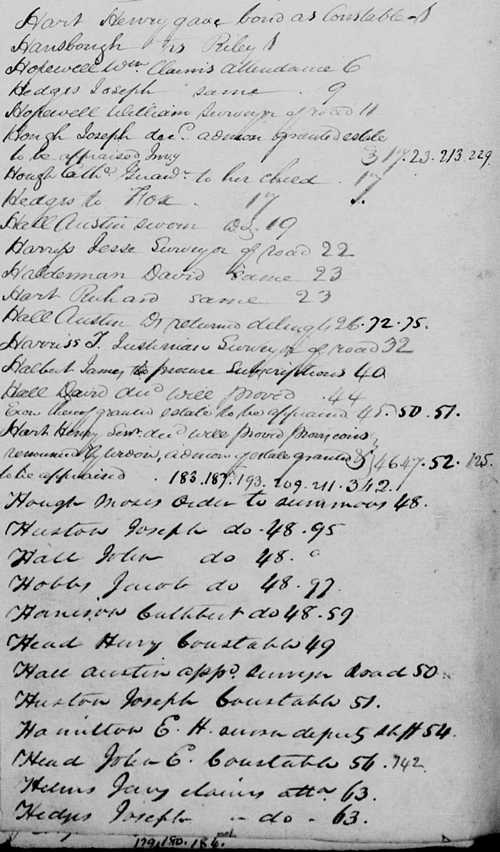 Hart Henry gave bond as Constable 1
Hansbough vs Riley 1
Hopewell Wm. Claims attendance 6
Hedges Joseph same . 9
Hopewell William Surveyor of road 11
Hough Joseph decd. admon granted estate
to be appraised 3 17. 23. 213. 229
Hough Guardn. to her child . 17
Hedges to Fox . 17
Hall Austin sworn D.S. 19
Harriss Jesse Surveyor of road 22
Halderman David same 23
Hart Richard same 23
Hall Austin returned 26. 72. 75.
Harriss T. Surveyor of road 32
Halbert James to procure Subscriptions 40
Hall David decd will proved . 44
thereof granted estate to be appraised 45. 50. 51.
Hart Henry Senr. decd will proved
renounced by widow, admon. of estate granted 46 47. 52. 125.
to be appraised . 183. 187. 193. 209. 211. 342.
Hough Moses order to summons 48.
Huston Joseph do. 48. 95
Hall John do 48.
Hobbs Jacob do 48. 97.
Harrison Cuthbert do 48. 59
Head Henry Constable 49
Hall Austin appd. Surveyor Road 50
Huston Joseph Constable 51.
Hamilton E. H. sworn deputy shff 54.
Head John E. Constable 54. 742.
Helms claims attn. 63.
Hedges Joseph - do - 63.
179. 180. 184.